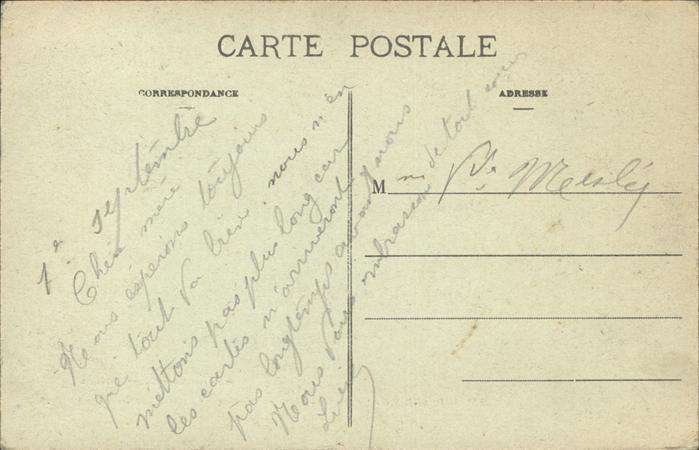 CARTE POSTALE
CORRESPONDANCE
ADRESSE
1er septembre
Chère mère
Nous espérons toujours
que tout va bien. nous n'en
mettons pas plus long car
les cartes n'arriveront
pas longtemps avant nous
Nous vous embrassons de tout cœur
M